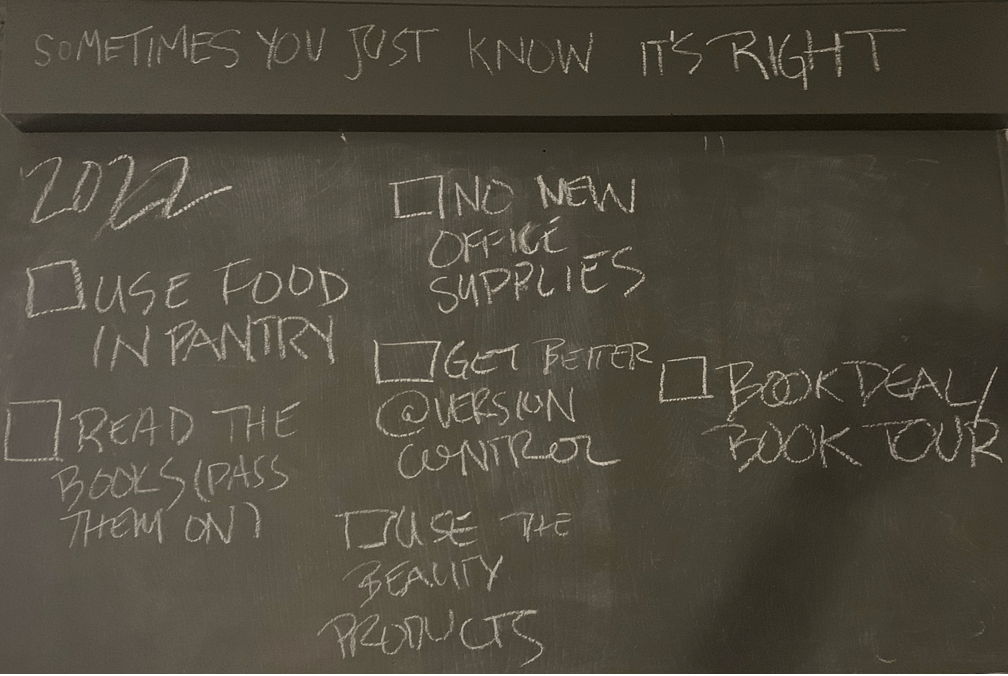 SOMETIMES YOU JUST KNOW IT'S RIGHT
2022
USE FOOD
IN PANTRY
READ THE
BOOKS (PASS
THEM ON)
NO NEW
OFFICE
SUPPLIES
GET BETTER
@VERSION
CONTROL
USE THE
BEAUTY
PRODUCTS
BOOK DEAL/
BOOK TOUR